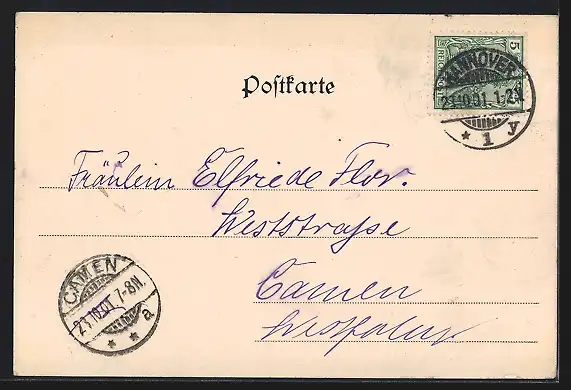 Postkarte
5
REICHSPOST
HANNOVER
23.10.01. 1-2N.
* 1 y
Fräulein Elfriede Flor.
Weststrasse
Camen
Westfalen
CAMEN
23.10.01. 7-8N.
* * a